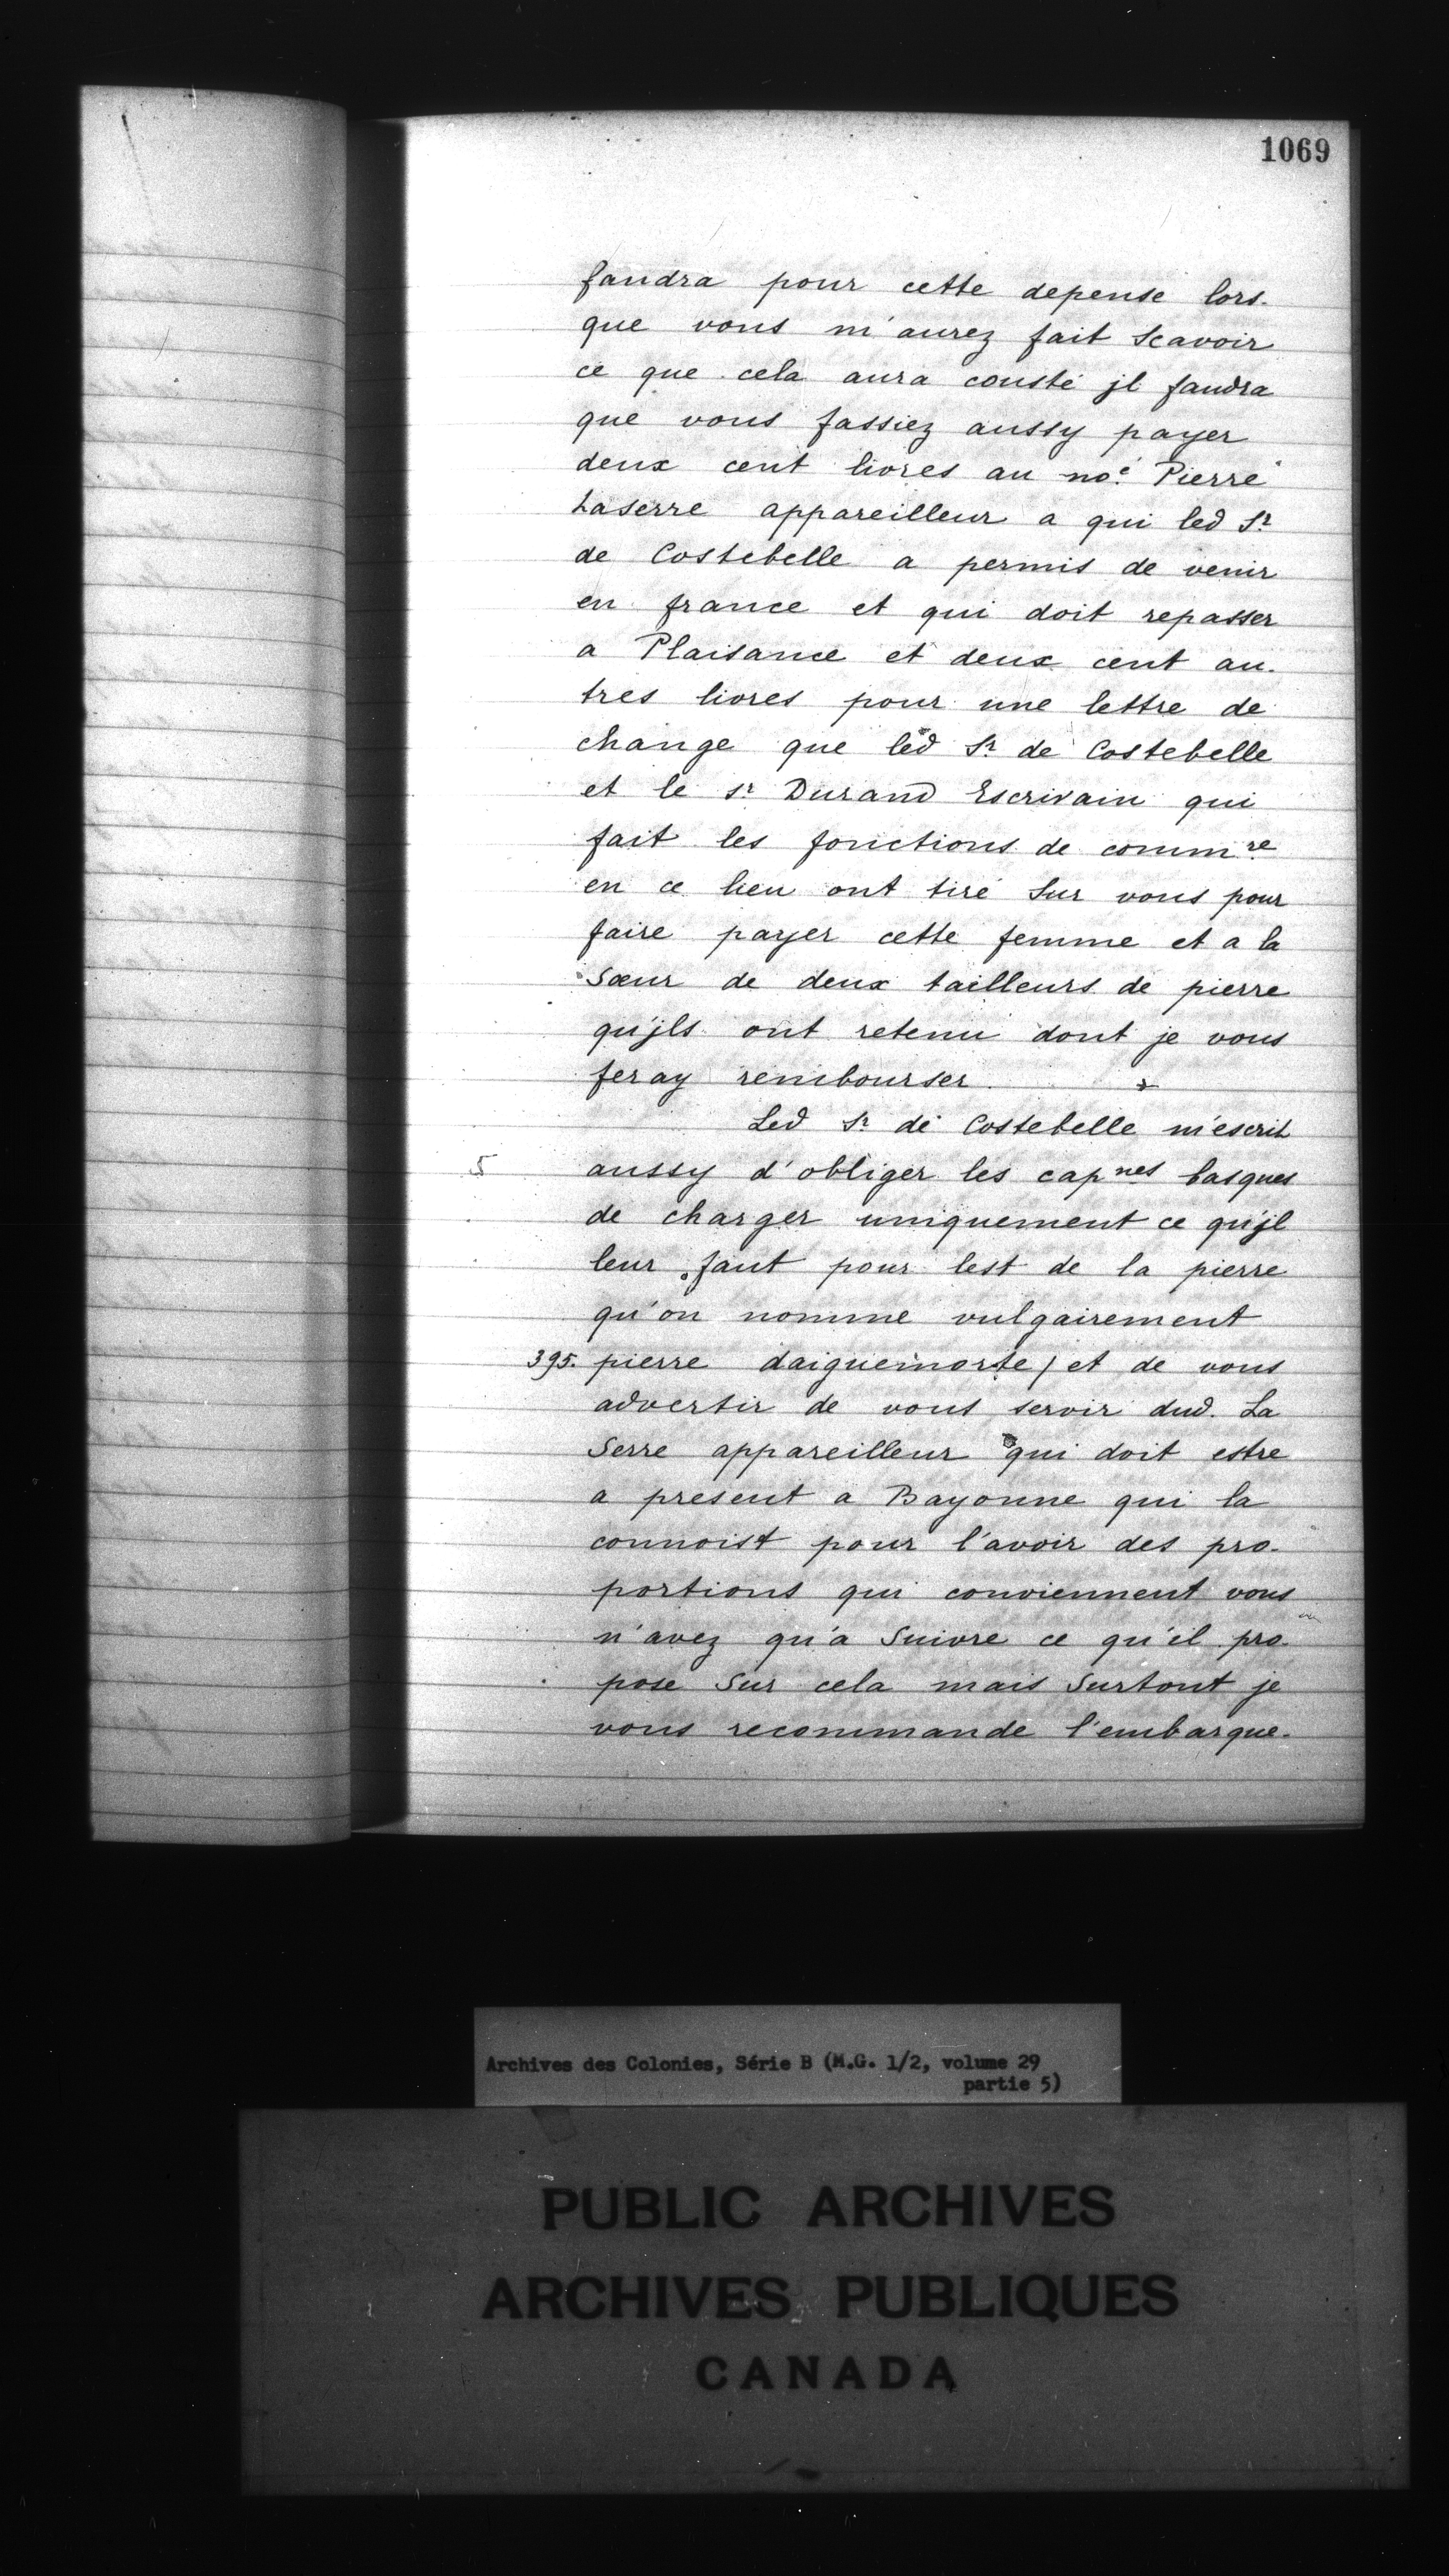 1069
faudra pour cette depense lors-
que vous m'aurez fait scavoir
ce que cela aura cousté jl faudra
que vous fassiez aussy payer
deux cent livres au noé Pierre
Laserre appareilleur a qui led Sr
de Costebelle a permis de venir
en france et qui doit repasser
a Plaisance et deux cent au-
tres livres pour une lettre de
change que led Sr de Costebelle
et le sr Durand Escrivain qui
fait les fonctions de commre
en ce lieu ont tiré sur vous pour
faire payer cette femme et a la
Sœur de deux tailleurs de pierre
qu'jls ont retenu dont je vous
feray rembourser.
Led Sr de Costebelle m'escrit
5 aussy d'obliger les capnes basques
de charger uniquement ce qu'jl
leur faut pour lest de la pierre
qu'on nomme vulgairement
395. pierre daiguemorte / et de vous
advertir de vous servir dud. La
Serre appareilleur qui doit estre
a present a Bayonne qui la
connoist pour l'avoir des pro-
portions qui conviennent vous
n'avez qu'a Suivre ce qu'il pro-
pose Sur cela mais Surtout je
vous recommande l'embarque-
Archives des Colonies, Série B (M.G. 1/2, volume 29
partie 5)
PUBLIC ARCHIVES
ARCHIVES PUBLIQUES
CANADA